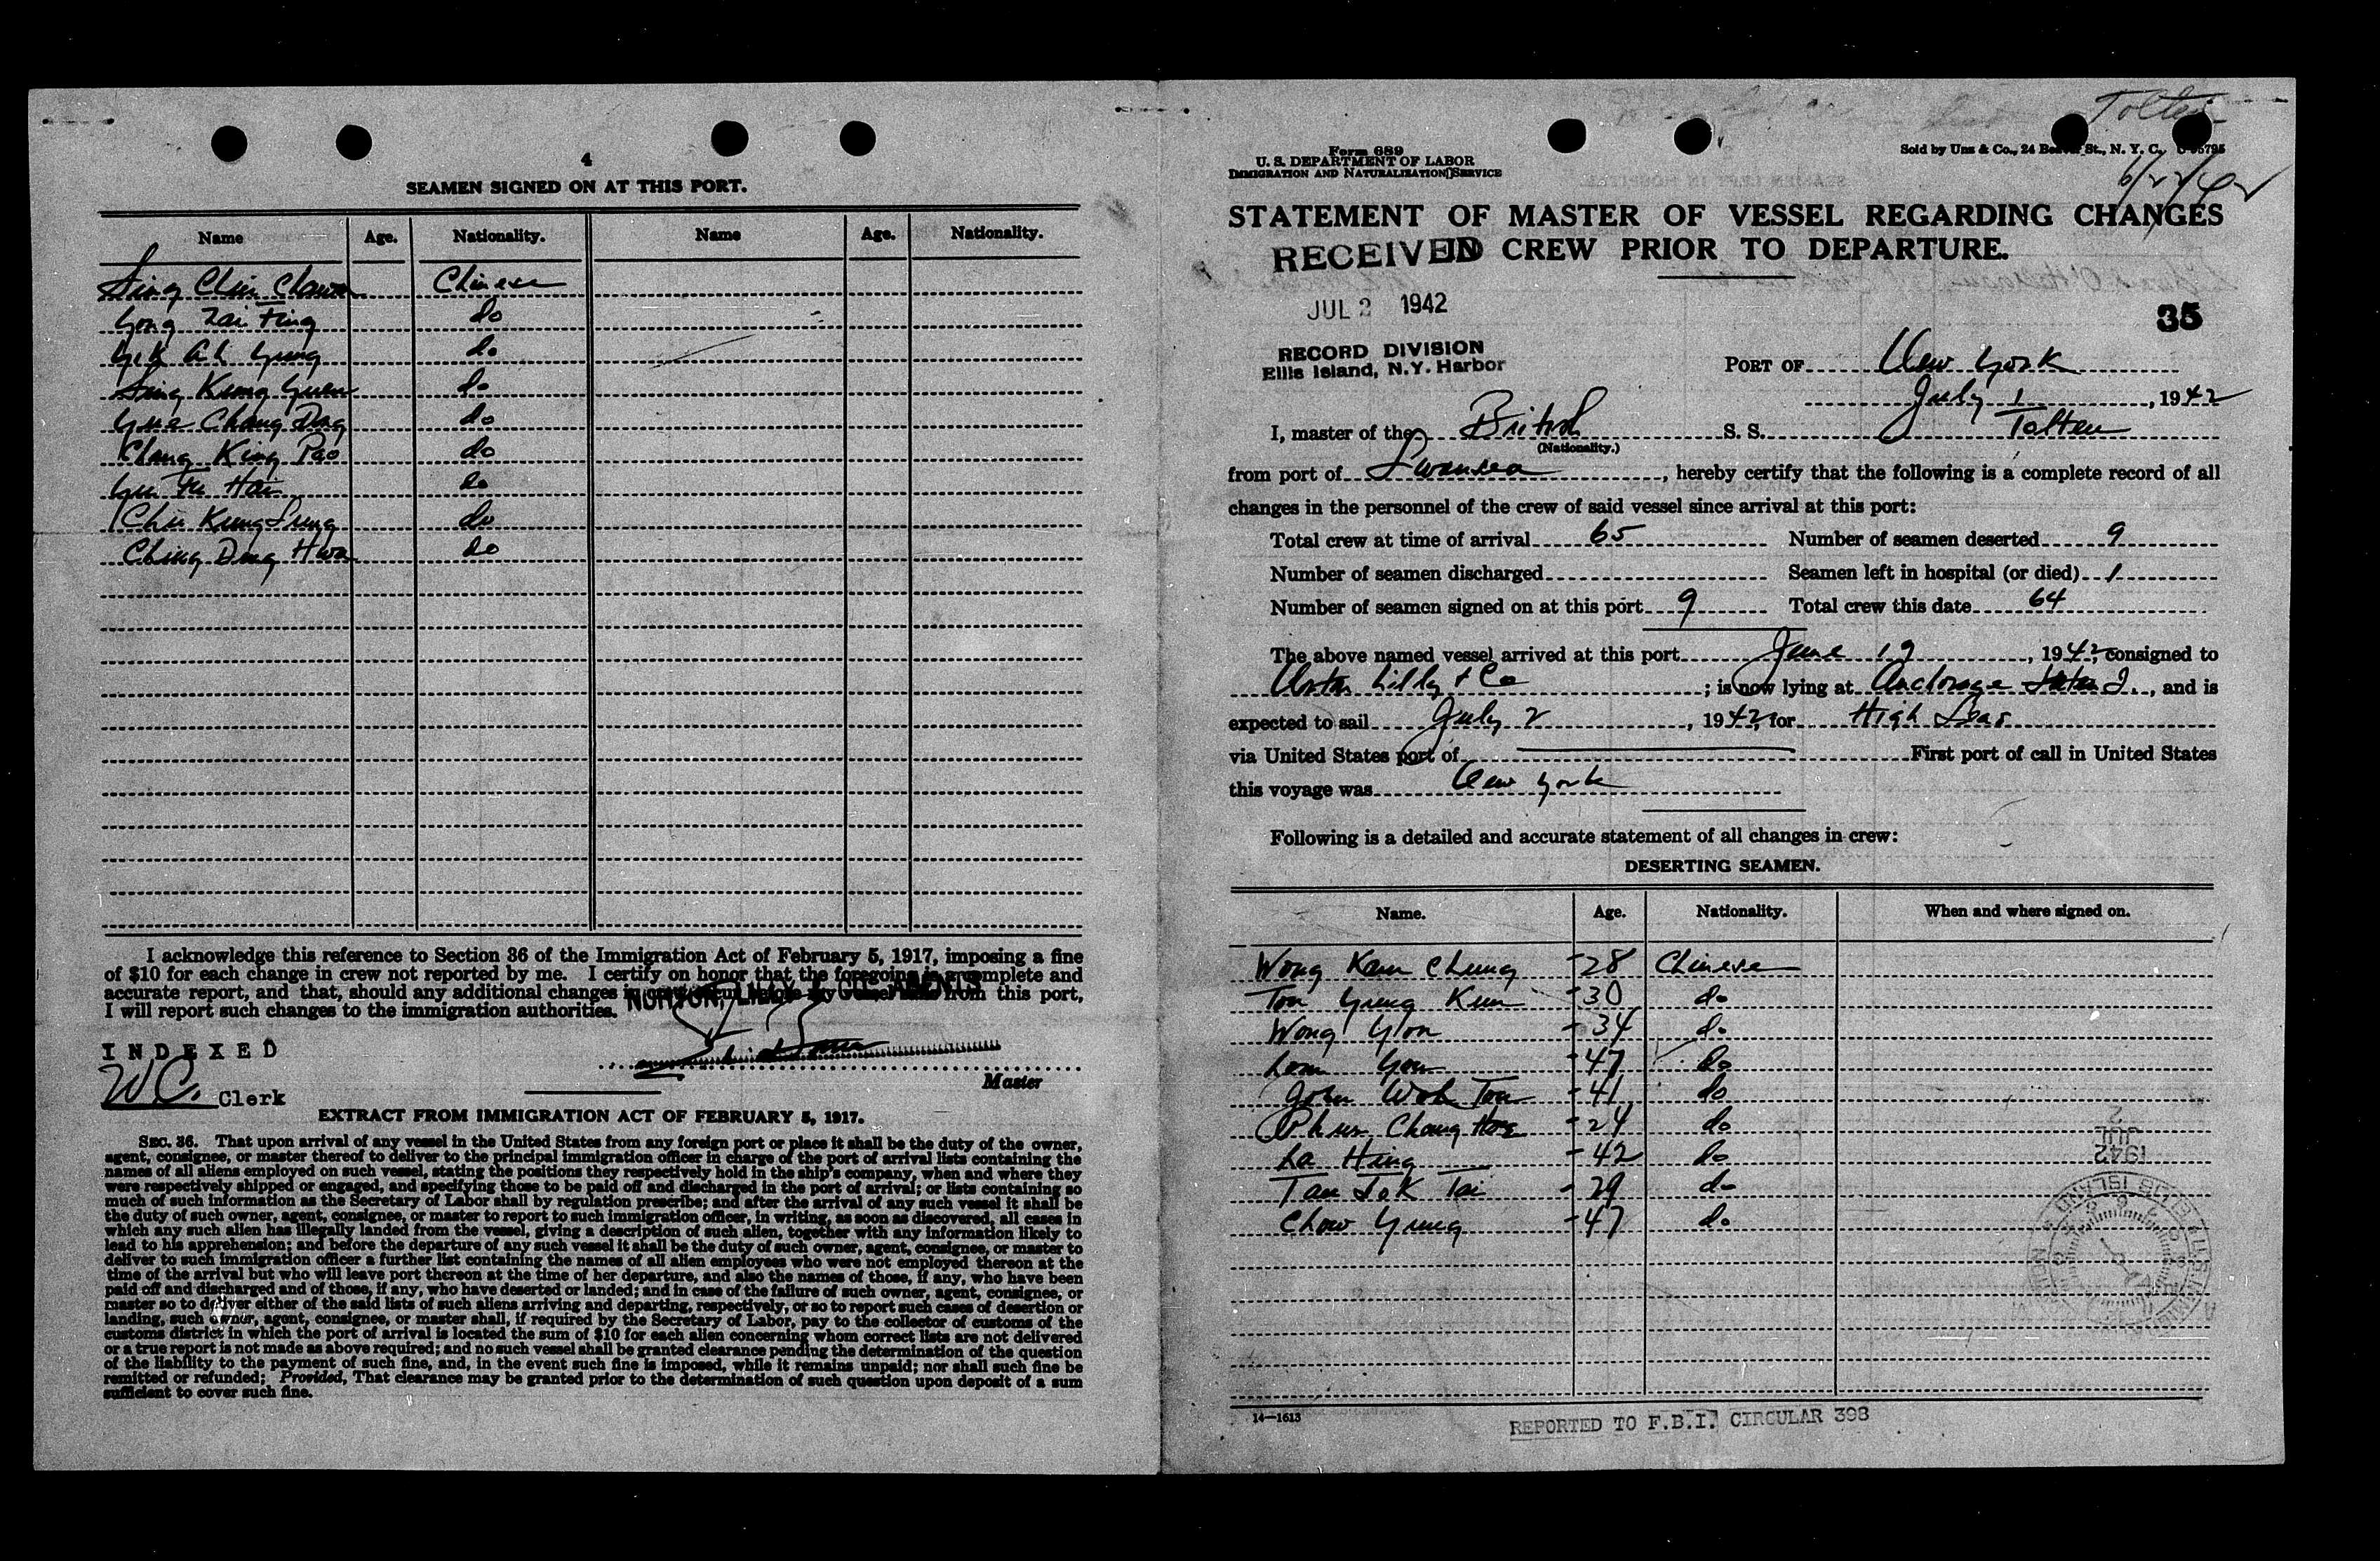 4
SEAMEN SIGNED ON AT THIS PORT.
Name Age. Nationality. Name Age. Nationality.
Sing Chin Chawn Chinese
Yong Zai Ting do
Yek Ah Yung do
Sing Kung Yuen do
Yue Chang Ding do
Chang King Pao do
Yu Fu Hai do
Chu Kung Sung do
Ching Ding Hwa do
I acknowledge this reference to Section 36 of the Immigration Act of February 5, 1917, imposing a fine
of $10 for each change in crew not reported by me. I certify on honor that the foregoing is a complete and
accurate report, and that, should any additional changes in from this port,
NORTON, LILLY & CO. AGENTS
I will report such changes to the immigration authorities.
INDEXED
W.C. Clerk
Master
EXTRACT FROM IMMIGRATION ACT OF FEBRUARY 5, 1917.
SEC. 36. That upon arrival of any vessel in the United States from any foreign port or place it shall be the duty of the owner,
agent, consignee, or master thereof to deliver to the principal immigration officer in charge of the port of arrival lists containing the
names of all aliens employed on such vessel, stating the positions they respectively hold in the ship's company, when and where they
were respectively shipped or engaged, and specifying those to be paid off and discharged in the port of arrival; or lists containing so
much of such information as the Secretary of Labor shall by regulation prescribe; and after the arrival of any such vessel it shall be
the duty of such owner, agent, consignee, or master to report to such immigration officer, in writing, as soon as discovered, all cases in
which any such alien has illegally landed from the vessel, giving a description of such alien, together with any information likely to
lead to his apprehension; and before the departure of any such vessel it shall be the duty of such owner, agent, consignee, or master to
deliver to such immigration officer a further list containing the names of all alien employees who were not employed thereon at the
time of the arrival but who will leave port thereon at the time of her departure, and also the names of those, if any, who have been
paid off and discharged and of those, if any, who have deserted or landed; and in case of the failure of such owner, agent, consignee, or
master so to deliver either of the said lists of such aliens arriving and departing, respectively, or so to report such cases of desertion or
landing, such owner, agent, consignee, or master shall, if required by the Secretary of Labor, pay to the collector of customs of the
customs district in which the port of arrival is located the sum of $10 for each alien concerning whom correct lists are not delivered
or a true report is not made as above required; and no such vessel shall be granted clearance pending the determination of the question
of the liability to the payment of such fine, and, in the event such fine is imposed, while it remains unpaid; nor shall such fine be
remitted or refunded; Provided, That clearance may be granted prior to the determination of such question upon deposit of a sum
sufficient to cover such fine.
Tolten
6/22/42
Form 689
U. S. DEPARTMENT OF LABOR
IMMIGRATION AND NATURALIZATION SERVICE
Sold by Unz & Co., 24 Beaver St., N. Y. C.
STATEMENT OF MASTER OF VESSEL REGARDING CHANGES
IN CREW PRIOR TO DEPARTURE.
RECEIVED
JUL 2 1942
RECORD DIVISION
Ellis Island, N.Y. Harbor
35
PORT OF New York
July 1, 1942
I, master of the British S. S. Tolten
(Nationality.)
from port of Swansea, hereby certify that the following is a complete record of all
changes in the personnel of the crew of said vessel since arrival at this port:
Total crew at time of arrival 65 Number of seamen deserted 9
Number of seamen discharged Seamen left in hospital (or died) 1
Number of seamen signed on at this port 9 Total crew this date 64
The above named vessel arrived at this port June 19, 1942, consigned to
Norton Lilly & Co; is now lying at Anchorage Staten I., and is
expected to sail July 2, 1942, for High Seas
via United States port of First port of call in United States
this voyage was New York
Following is a detailed and accurate statement of all changes in crew:
DESERTING SEAMEN.
Name. Age. Nationality. When and where signed on.
Wong Kam Chung - 28 Chinese
Ton Yung Kun - 30 do
Wong Yon - 34 do
Lom You - 47 do
John Woh Ton - 41 do
Phun Chong Hoe - 24 do
La Hing - 42 do
Tan Jok Tai - 29 do
Chow Yung - 47 do
JUL 2 1942
14—1613
REPORTED TO F.B.I. CIRCULAR 398